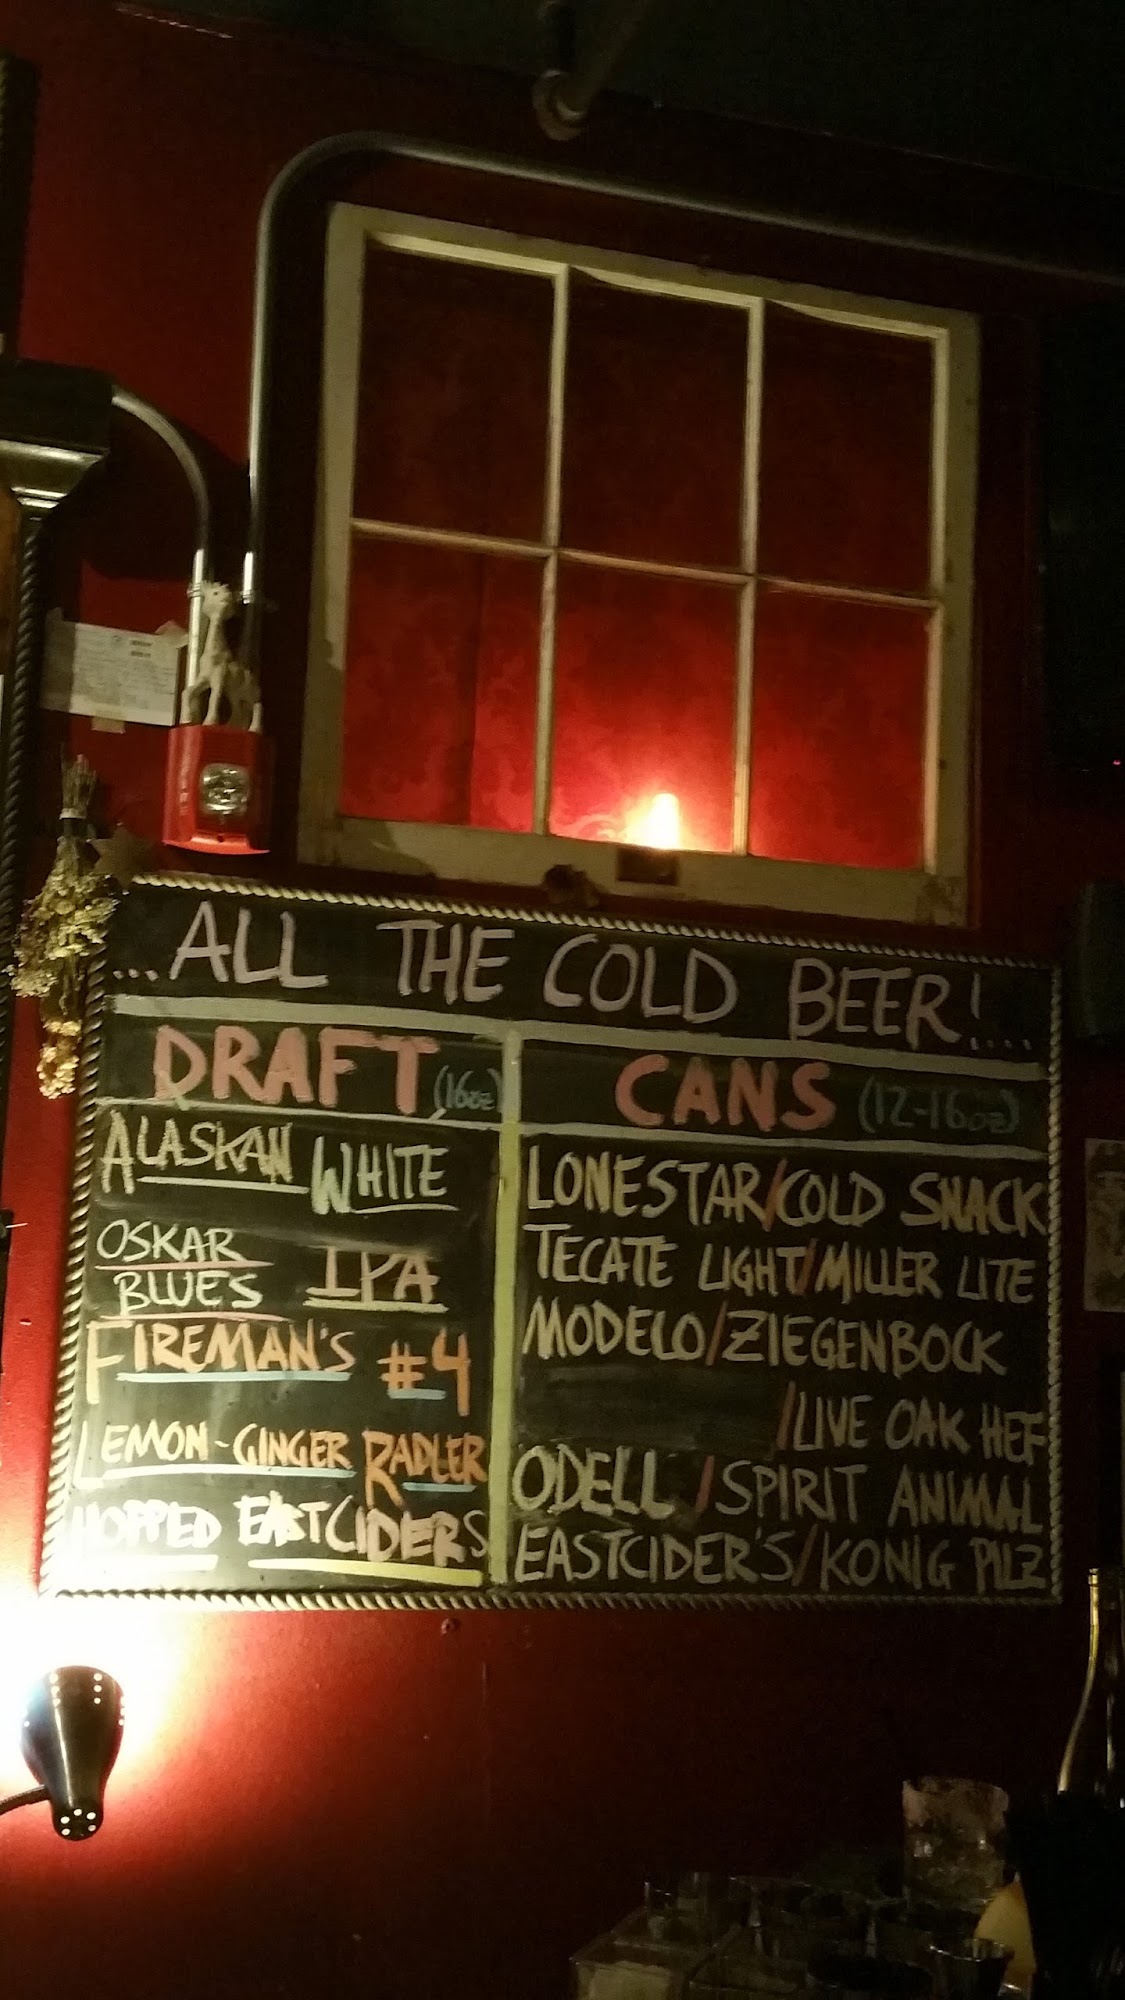 ...ALL THE COLD BEER!...
DRAFT (16oz)
ALASKAN WHITE
OSKAR BLUES IPA
FIREMAN'S #4
LEMON-GINGER RADLER
HOPPED EASTCIDERS
CANS (12-16oz)
LONESTAR/COLD SNACK
TECATE LIGHT/MILLER LITE
MODELO/ZIEGENBOCK
/LIVE OAK HEF
ODELL /SPIRIT ANIMAL
EASTCIDER'S/KONIG PILZ